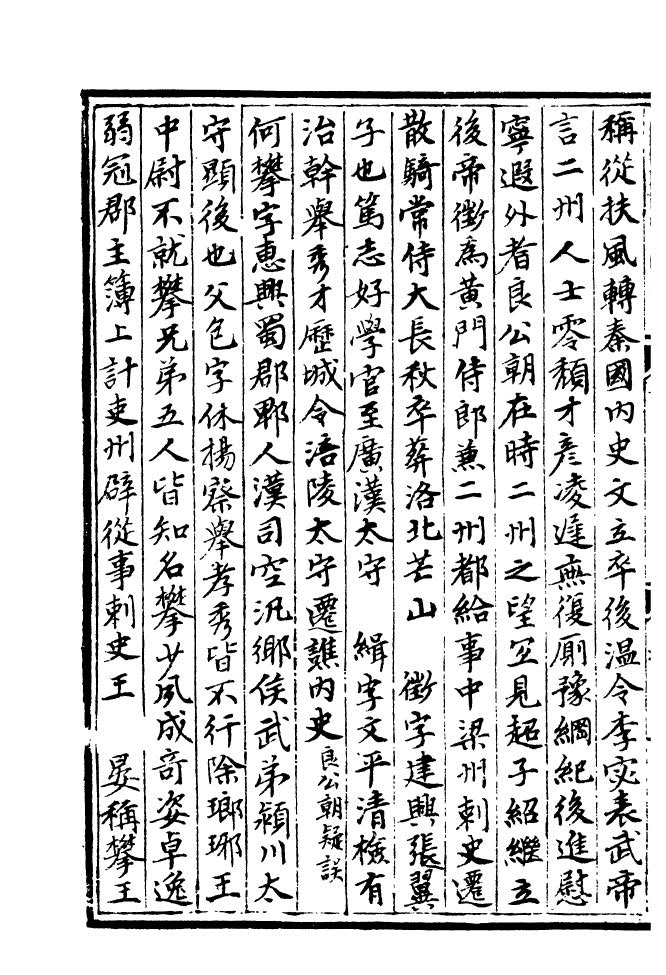 稱從扶風轉秦國内史文立卒後温令李宓表武帝
言二州人士零頽才彥凌遲無復厠豫綱紀後進慰
寧遐外者良公朝在時二州之望并見超子紹繼立
後帝徵爲黄門侍郎兼二州都給事中梁州刺史遷
散騎常侍大長秋卒葬洛北芒山　徵字建興張翼
子也篤志好學官至廣漢太守　緝字文平清檢有
治幹舉秀才歷城令涪陵太守遷譙内史良公朝疑誤
何攀字惠興蜀郡郫人漢司空汎鄉侯武弟潁川太
守顯後也父包字休楊察舉孝秀皆不行除瑯琊王
中尉不就攀兄弟五人皆知名攀少夙成奇姿卓逸
弱冠郡主簿上計吏州辟從事刺史王　晏稱攀王